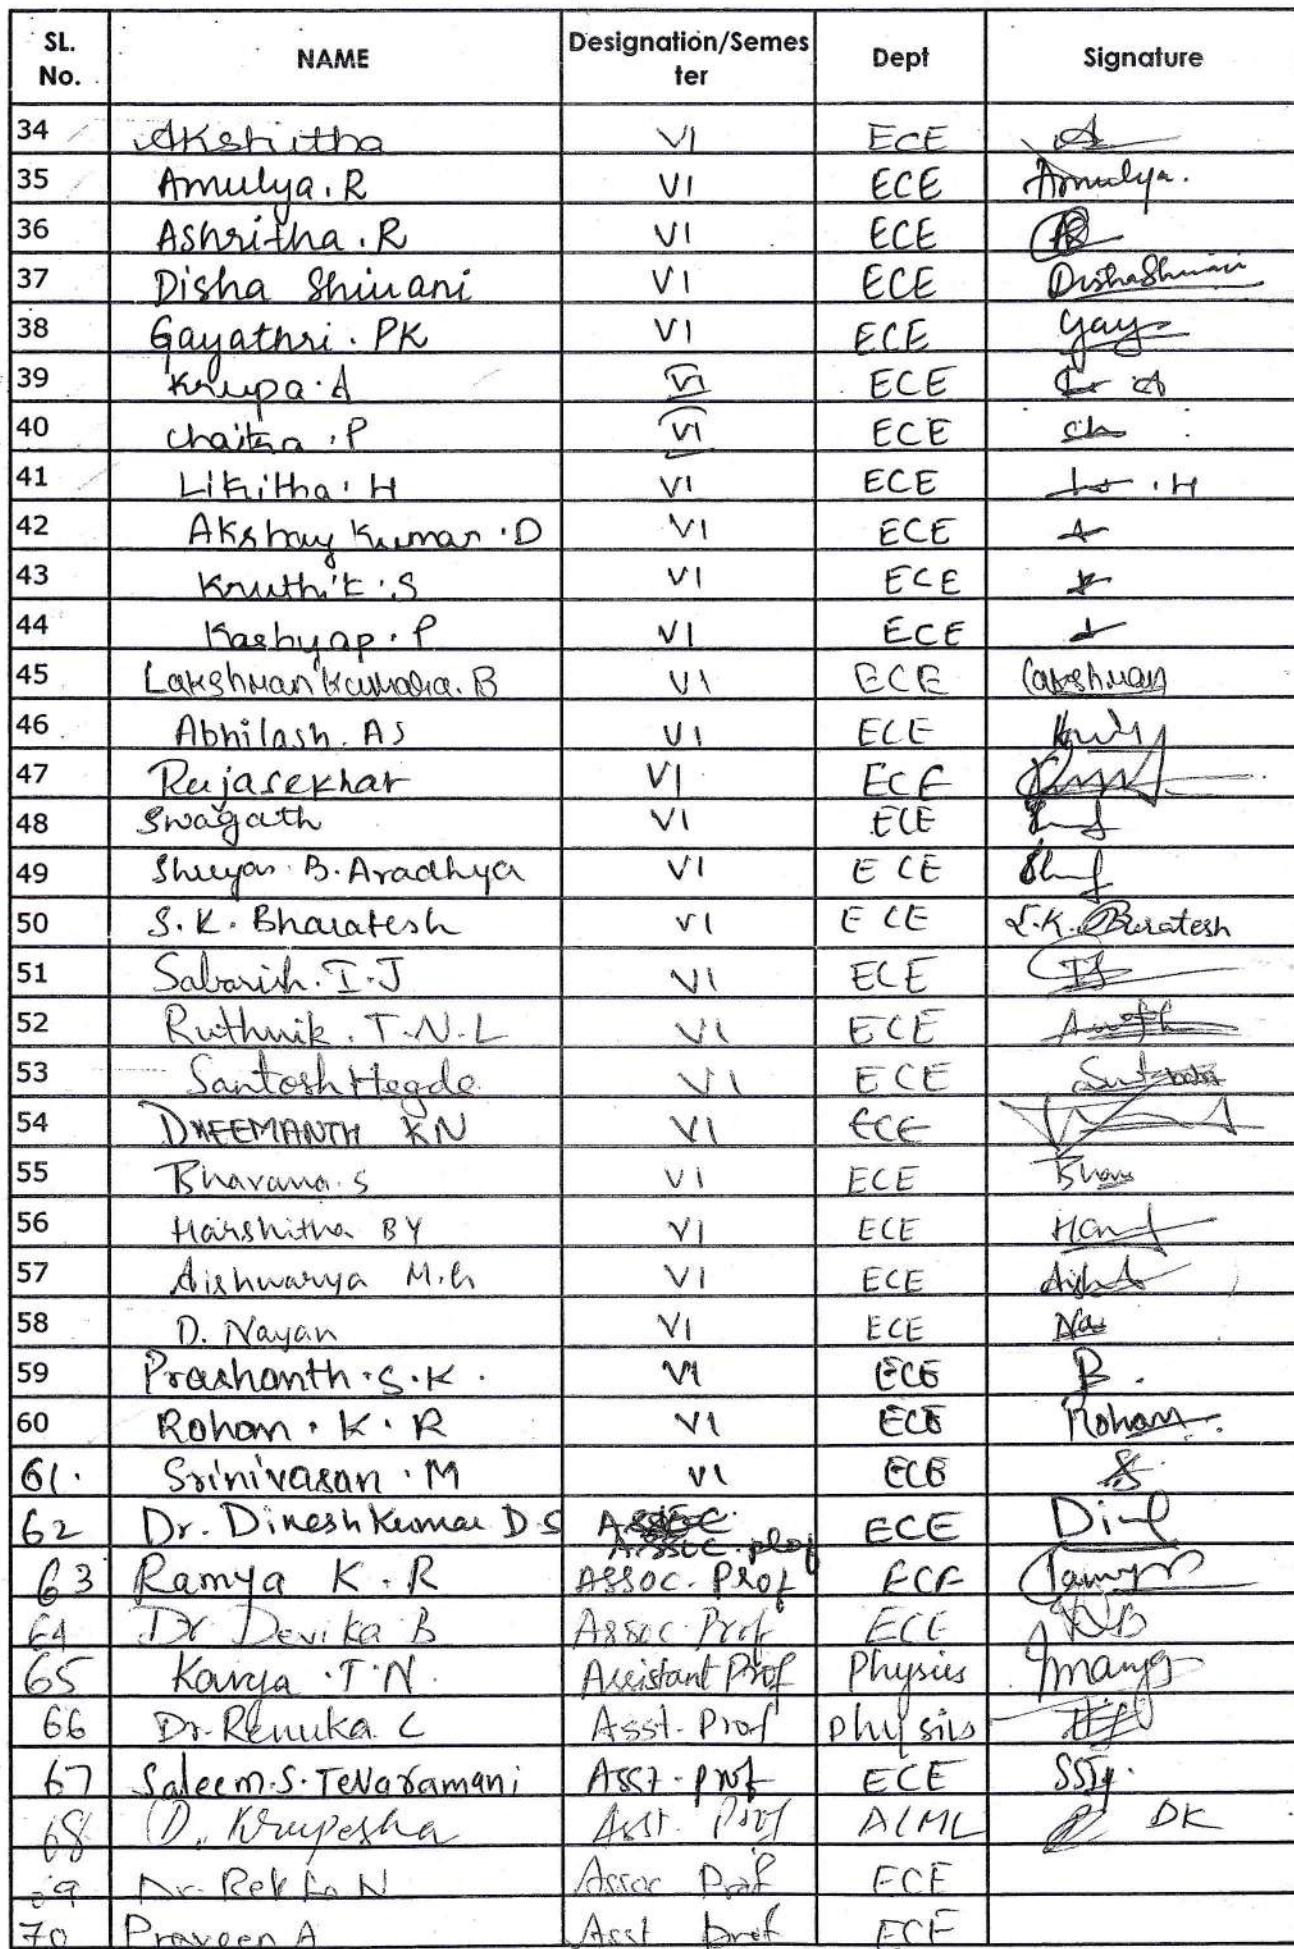 SL. No. NAME Designation/Semester Dept Signature
34 Akshitha VI ECE A
35 Amulya. R VI ECE Amulya.
36 Ashritha. R VI ECE AR
37 Disha Shivani VI ECE DishaShivani
38 Gayathri. PK VI ECE Gay
39 Krupa. A VI ECE
40 Chaitra. P VI ECE Ch
41 Likitha. H VI ECE . H
42 Akshay Kumar. D VI ECE A
43 Kruthik. S VI ECE
44 Kashyap. P VI ECE
45 Lakshman Kumara. B VI ECE Lakshman
46 Abhilash. AS VI ECE
47 Rajasekhar VI ECE
48 Swagath VI ECE
49 Shreyas. B. Aradhya VI ECE
50 S. K. Bharatesh VI ECE S. K. Bharatesh
51 Sabarish. I. J VI ECE IJ
52 Ruthvik. T. N. L VI ECE
53 Santosh Hegde VI ECE
54 DHEEMANTH KN VI ECE
55 Bhavana. S VI ECE Bhava
56 Harshitha BY VI ECE
57 Aishwarya M.G VI ECE
58 D. Nayan VI ECE Na
59 Prashanth. S. K. VI ECE P.
60 Rohan. K. R VI ECE Rohan.
61. Srinivasan. M VI ECE S
62 Dr. Dinesh Kumar D S Assoc. prof ECE
63 Ramya K. R Assoc. Prof ECE Ramya
64 Dr Devika B Assoc. Prof ECE
65 Kavya. T. N. Assistant Prof Physics
66 Dr. Renuka. C Asst. Prof physics
67 Saleem. S. Tevaramani Asst. prof ECE SST
68 D. Krupesha Asst. Prof AIML DK
69 Dr. Rekha N Assoc Prof ECE
70 Praveen A Asst Prof ECE